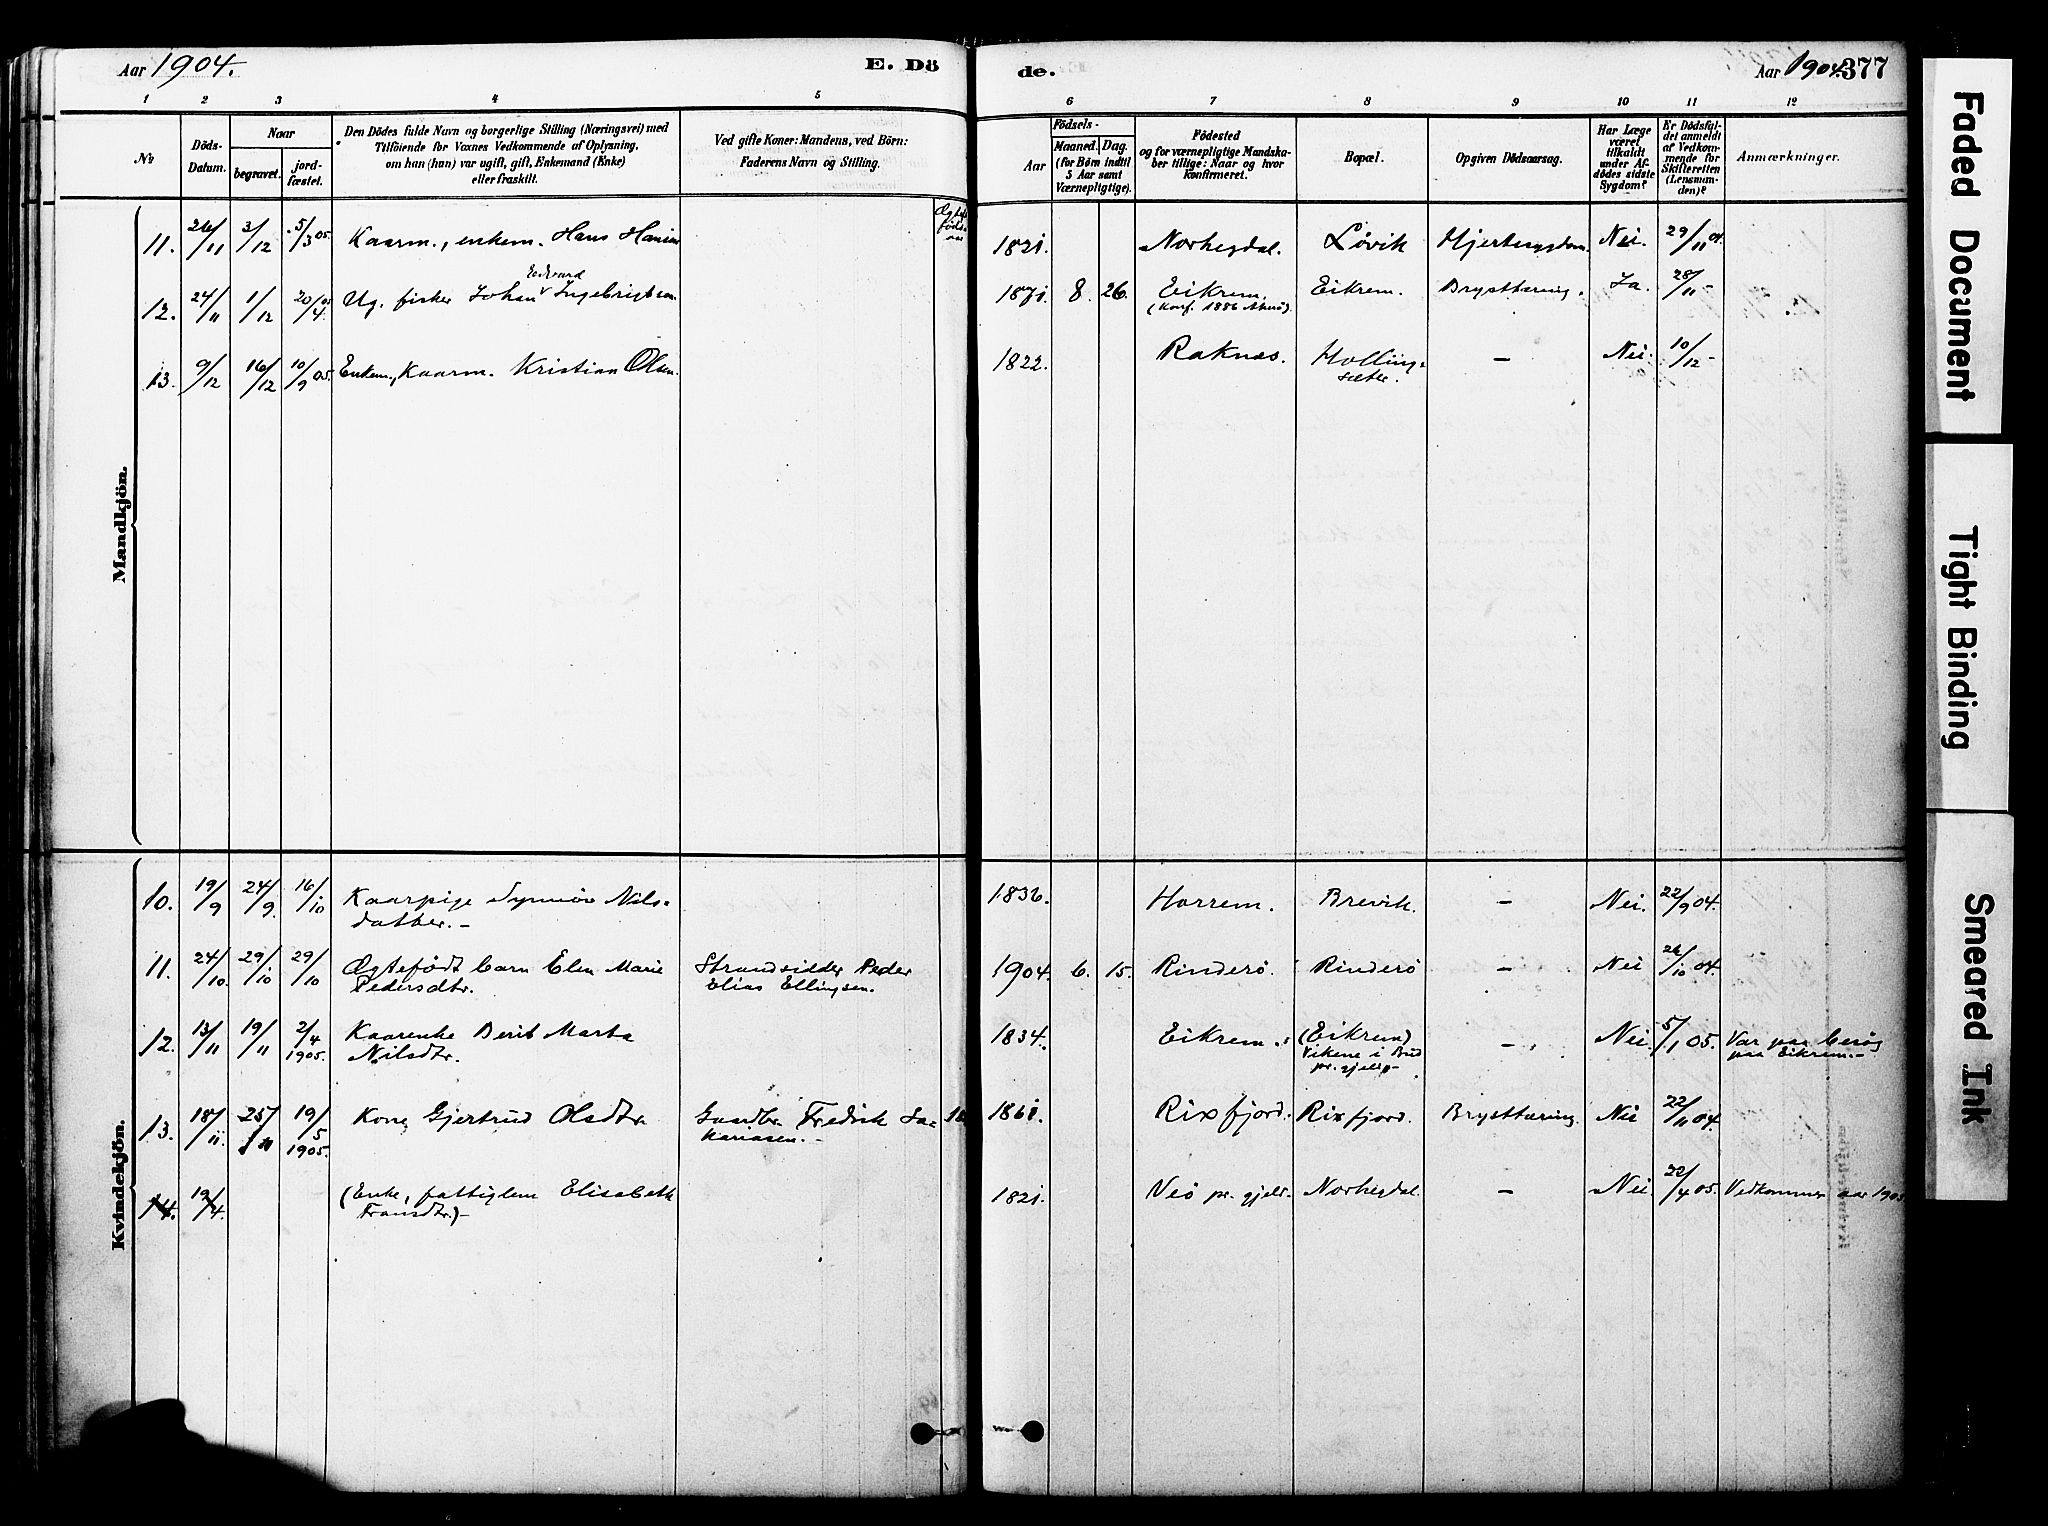 Aar 1904.
E. Dö
de.
Aar 1904. 377
1 2 3 4 5 6 7 8 9 10 11 12
№
Döds-
Datum.
Naar
begravet.
jord-
fæstet.
Den Dödes fulde Navn og borgerlige Stilling (Næringsvei) med
Tilföiende for Voxnes Vedkommende af Oplysning,
om han (hun) var ugift, gift, Enkemand (Enke)
eller fraskilt.
Ved gifte Koner: Mandens, ved Börn:
Faderens Navn og Stilling.
Födsels-
Aar
Maaned. Dag.
(for Börn indtil
5 Aar samt
Værnepligtige).
Födested
og for værnepligtige Mandska-
ber tillige: Naar og hvor
konfirmeret.
Bopæl.
Opgiven Dödsaarsag.
Har Læge
været
tilkaldt
under Af-
dödes sidste
Sygdom?
Er Dödsfal-
det anmeldt
af Vedkom-
mende for
Skifteretten
(Lensman-
den)?
Anmærkninger.
Mandkjön.
11. 26/11 3/12 5/3 05. Kaarm., enkem. Hans Hansen 1821. Norhegdal. Løvik Hjertesygdom. Nei. 29/11 04.
Edvard
12. 24/11 1/12 20/4 05 Ug. fisker Johan Ingebrigtsen 1871. 8. 26. Eikrem. Eikrem. Brysttæring. Ja. 28/11 -
(Konf. 1886 Akerö).
13. 9/12 16/12 10/9 05. Enkem., Kaarm. Kristian Olsen. 1822. Raknes. Holling- - Nei. 10/12 -
sæter.
Kvindekjön.
10. 19/9 24/9. 16/10 Kaarpige Synnöv Nils- 1836. Harrem. Brevik. - Nei. 22/9 04.
datter. -
11. 24/10. 29/10 29/10 Ægtefödt barn Elen Marie Strandsidder Peder 1904. 6. 15. Rinderö. Rinderö - Nei 26/10 04.
Pedersdtr. Elias Ellingsen.
12. 13/11 19/11 2/4 Kaarenke Berit Marta 1834. Eikrem. (Eikrem) - Nei 5/1 05. Var paa besög
1905. Nilsdtr. Vikene i Bud paa Eikrem. -
pr. gjeld -
13. 18/11. 25/11 19/5 Kone Gjertrud Olsdtr Gaardbr. Fredrik Za- 1861. Rixfjord. Rixfjord. Brysttæring. Nei 22/11 04.
1905. kariasen. -
14. 19/4. (Enke, fattiglem Elisabeth 1821. Veö pr. gjeld. Norhegdal. - Nei 22/4 05. Vedkommer aar 1905
Fransdtr.) -
Faded Document
Tight Binding
Smeared Ink